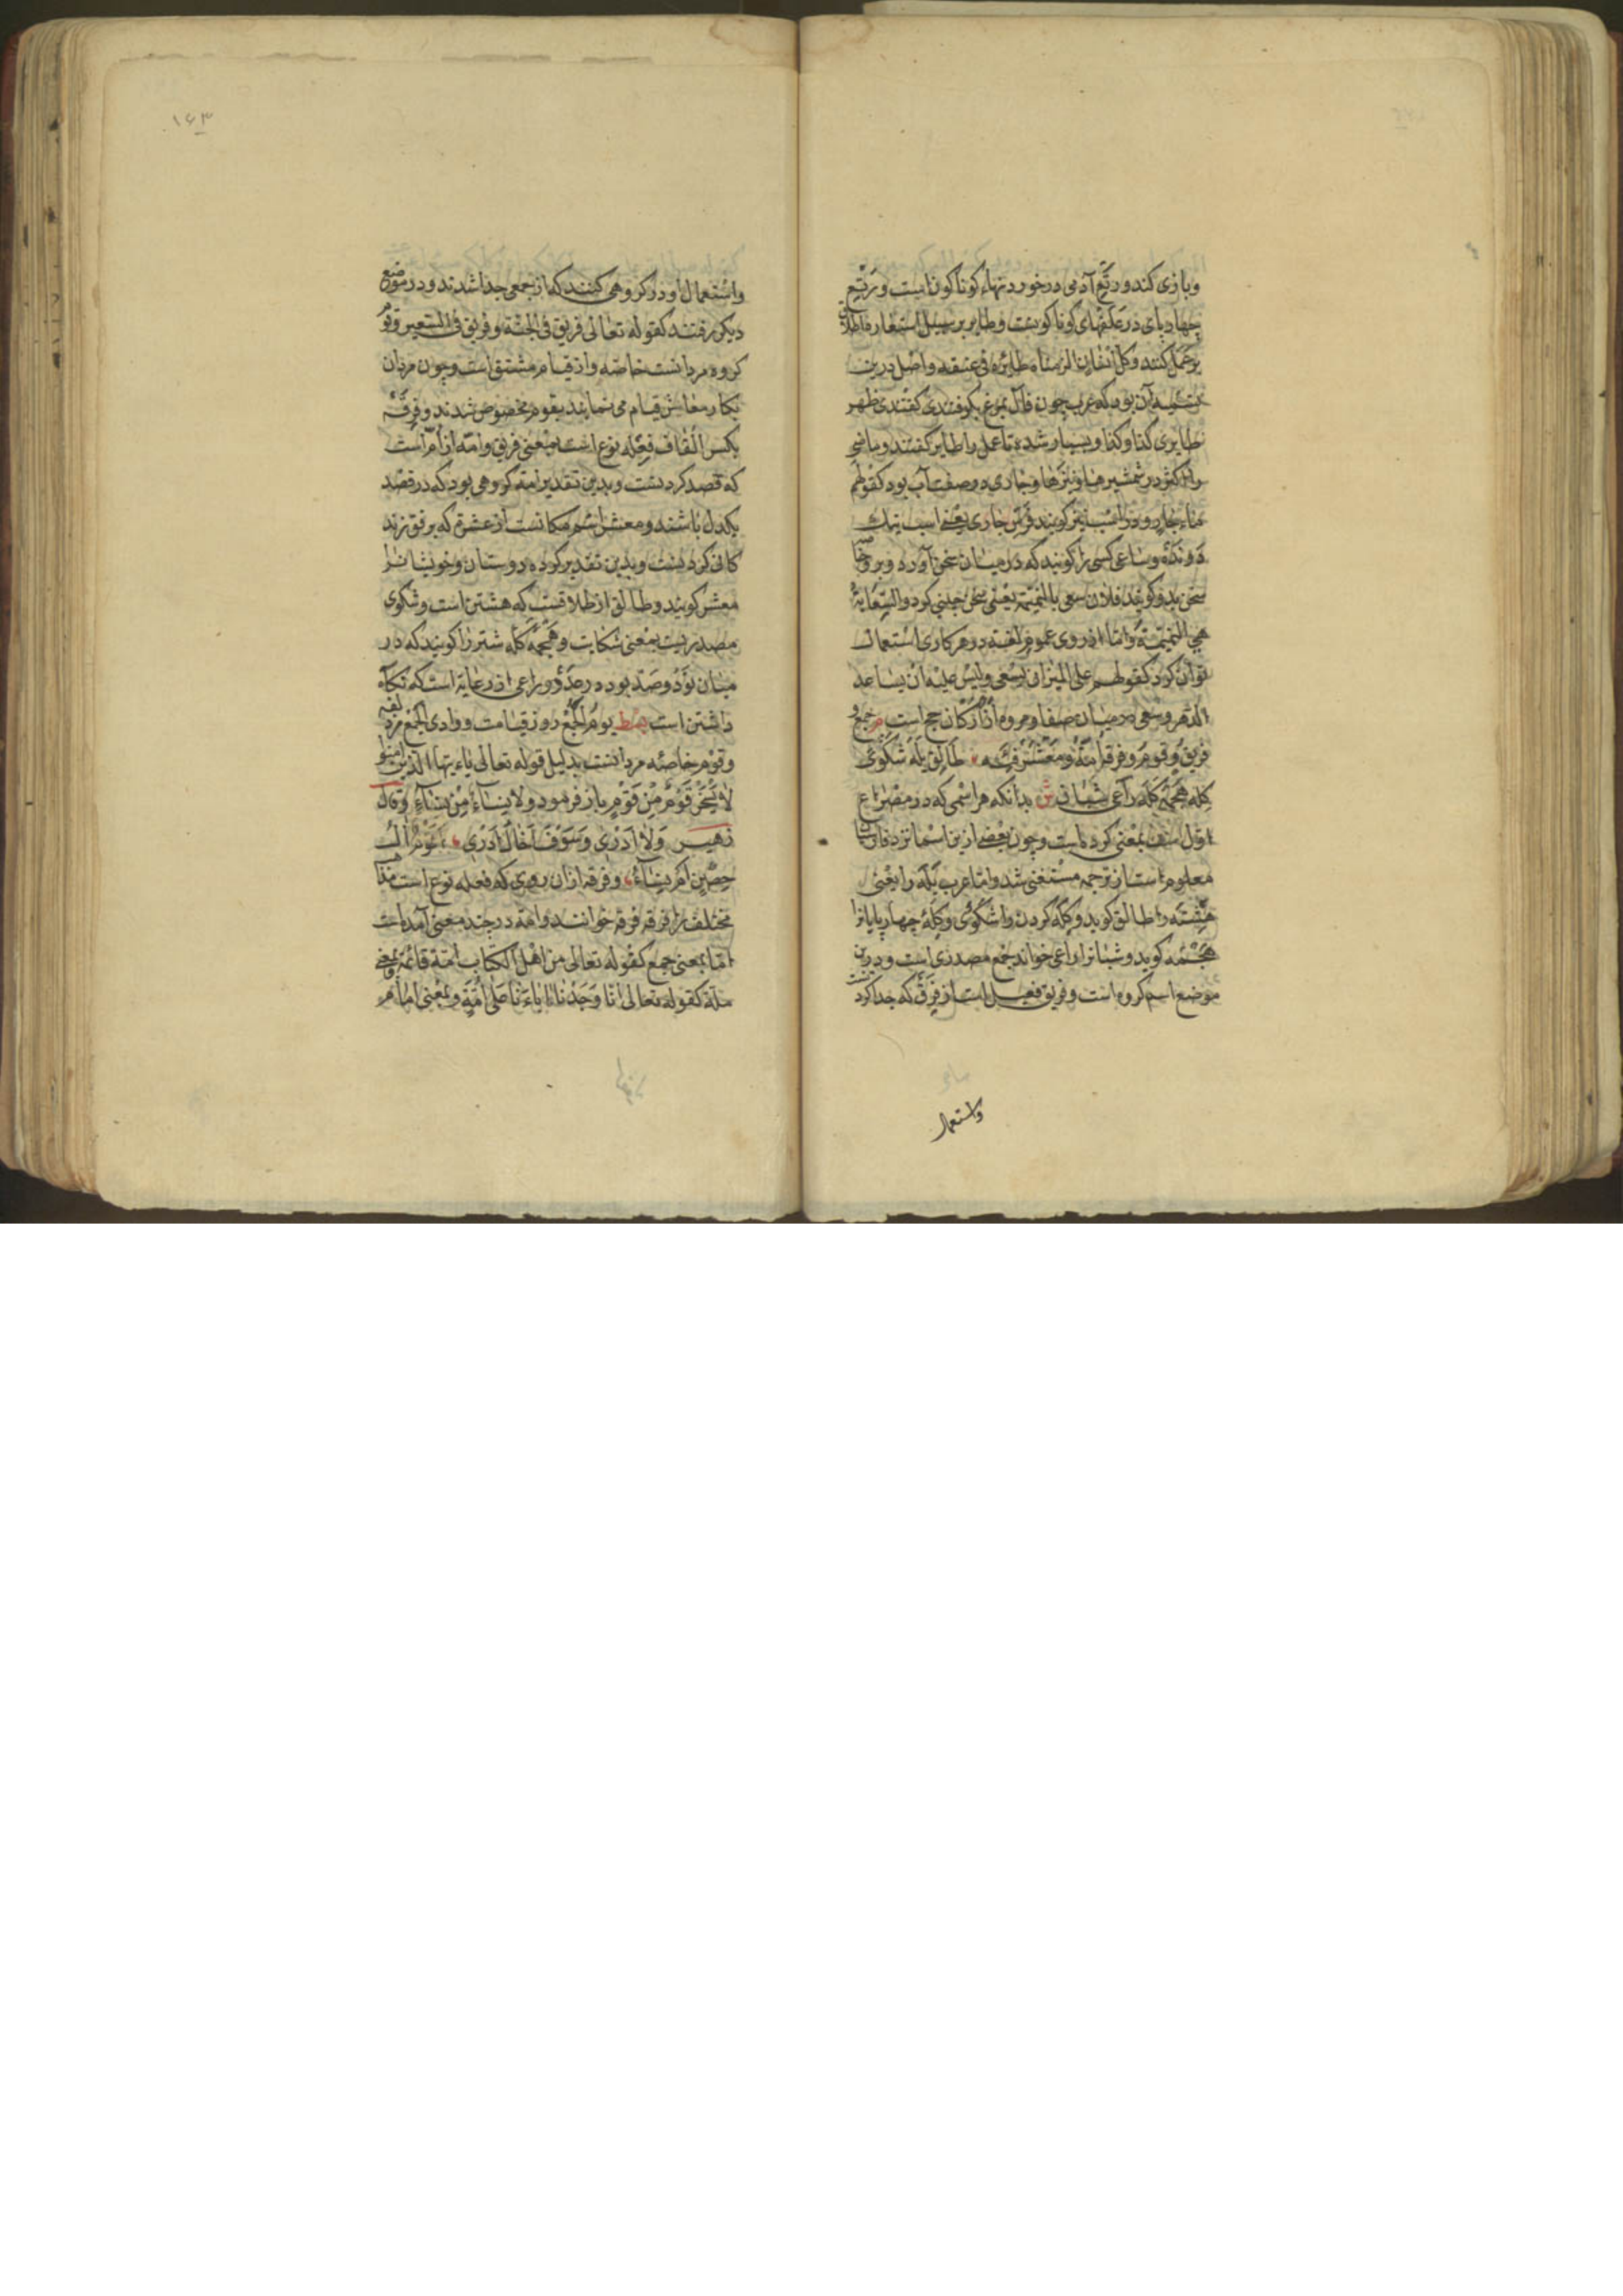 وبازی کند ورتع آدمی در خوردنیهاء کوناکون است ورتع
چهارپای در علفهای کوناکونست وطایر بر سبیل استعاره اطلاق
بر عمل کنند وکل انسان الزمناه طائره فی عنقه واصل درین
تسمیه آن بود که عرب چون فال بمرغ کرفتندی کفتندی ظهر
طایری کذا وکذا وبسیار شده تا عمل را طایر کفتند وماضی
را اکثر در شمشیرها ونیزها وجاری در صفت آب بود کقولهم
ماء جار ودر اسب نیز کویند فرس جاری یعنی اسب نیک
دونده وساعی کسی را کویند که در میان سخن آورد وبرو
سخن بد کویند فلان سعی بالنمیمة یعنی سخن چینی کرد والسعایة
هی النمیمة واما از روی عموم لغت در هر کاری استعمال
توان کرد کقولهم علی المرء ان یسعی ولیس علیه ان یساعد
الدهر وسعی در میان صفا ومروه از ارکان حج است م جمع و
فریق وقوم وفرقة امة ومعشر طالق یله شکوی
کله هجمة کله راعی شبان ش بدانکه هر اسمی که در مصراع
اول بمعنی کروه است وچون بعضی ازین اسما نزد فارسیان
معلوم است از ترجمه مستغنی شد واما عرب یله را یعنی
هشته را طالق کوید وکله کردن را شکوی وکلهٔ چهارپایانرا
هجمه کوید وشبانرا راعی خواند جمع مصدری است ودرین
موضع اسم کروه است وفریق فعیل است از فرق که جدا کردنست
واستعمال
۱۶۳
واستعمال او در کروهی کنند که از جمعی جدا شدند ودر موضع
دیکر رفتند کقوله تعالی فریق فی الجنة وفریق فی السعیر وقوم
کروه مردانست خاصه واز قیام مشتق است وچون مردان
بکار معاش قیام می نمایند بقوم مخصوص شدند وفرقة
بکسر القاف فعلة نوع است بمعنی فریق وامّه از أمّ است
که قصد کردنست وبدین تقدیر امة کروهی بود که در قصد
یکدل باشند ومعشر اسم مکانست از عشرة که برفق زند
کانی کردنست وبدین تقدیر کروه دوستان وخویشانرا
معشر کویند وطالق از طلاقست که هشتن است وشکوی
مصدریست بمعنی شکایت وهجمه کله شتر را کویند که در
میان نود وصد بود در عدد وراعی از رعایة است که نکاه
داشتن است بسط یوم الجمع روز قیامت ووادی الجمع مزدلفه
وقوم خاصّه مردانست بدلیل قوله تعالی یاء یها الذین امنوا
لا یسخر قوم من قوم باز فرمود ولا نساء من نساء وقال
زهیر ولا ادری وسوف اخال ادری اقوم ال
حصن ام نساء وفرقه ازان روی که فعله نوع است
مختلف را فرقه فرقه خوانند وامة در چند معنی آمده است
اما بمعنی جمع کقوله تعالی من اهل الکتاب امة قائمة وبمعنی
ملة کقوله تعالی انا وجدنا اباءنا علی امة وبمعنی امام